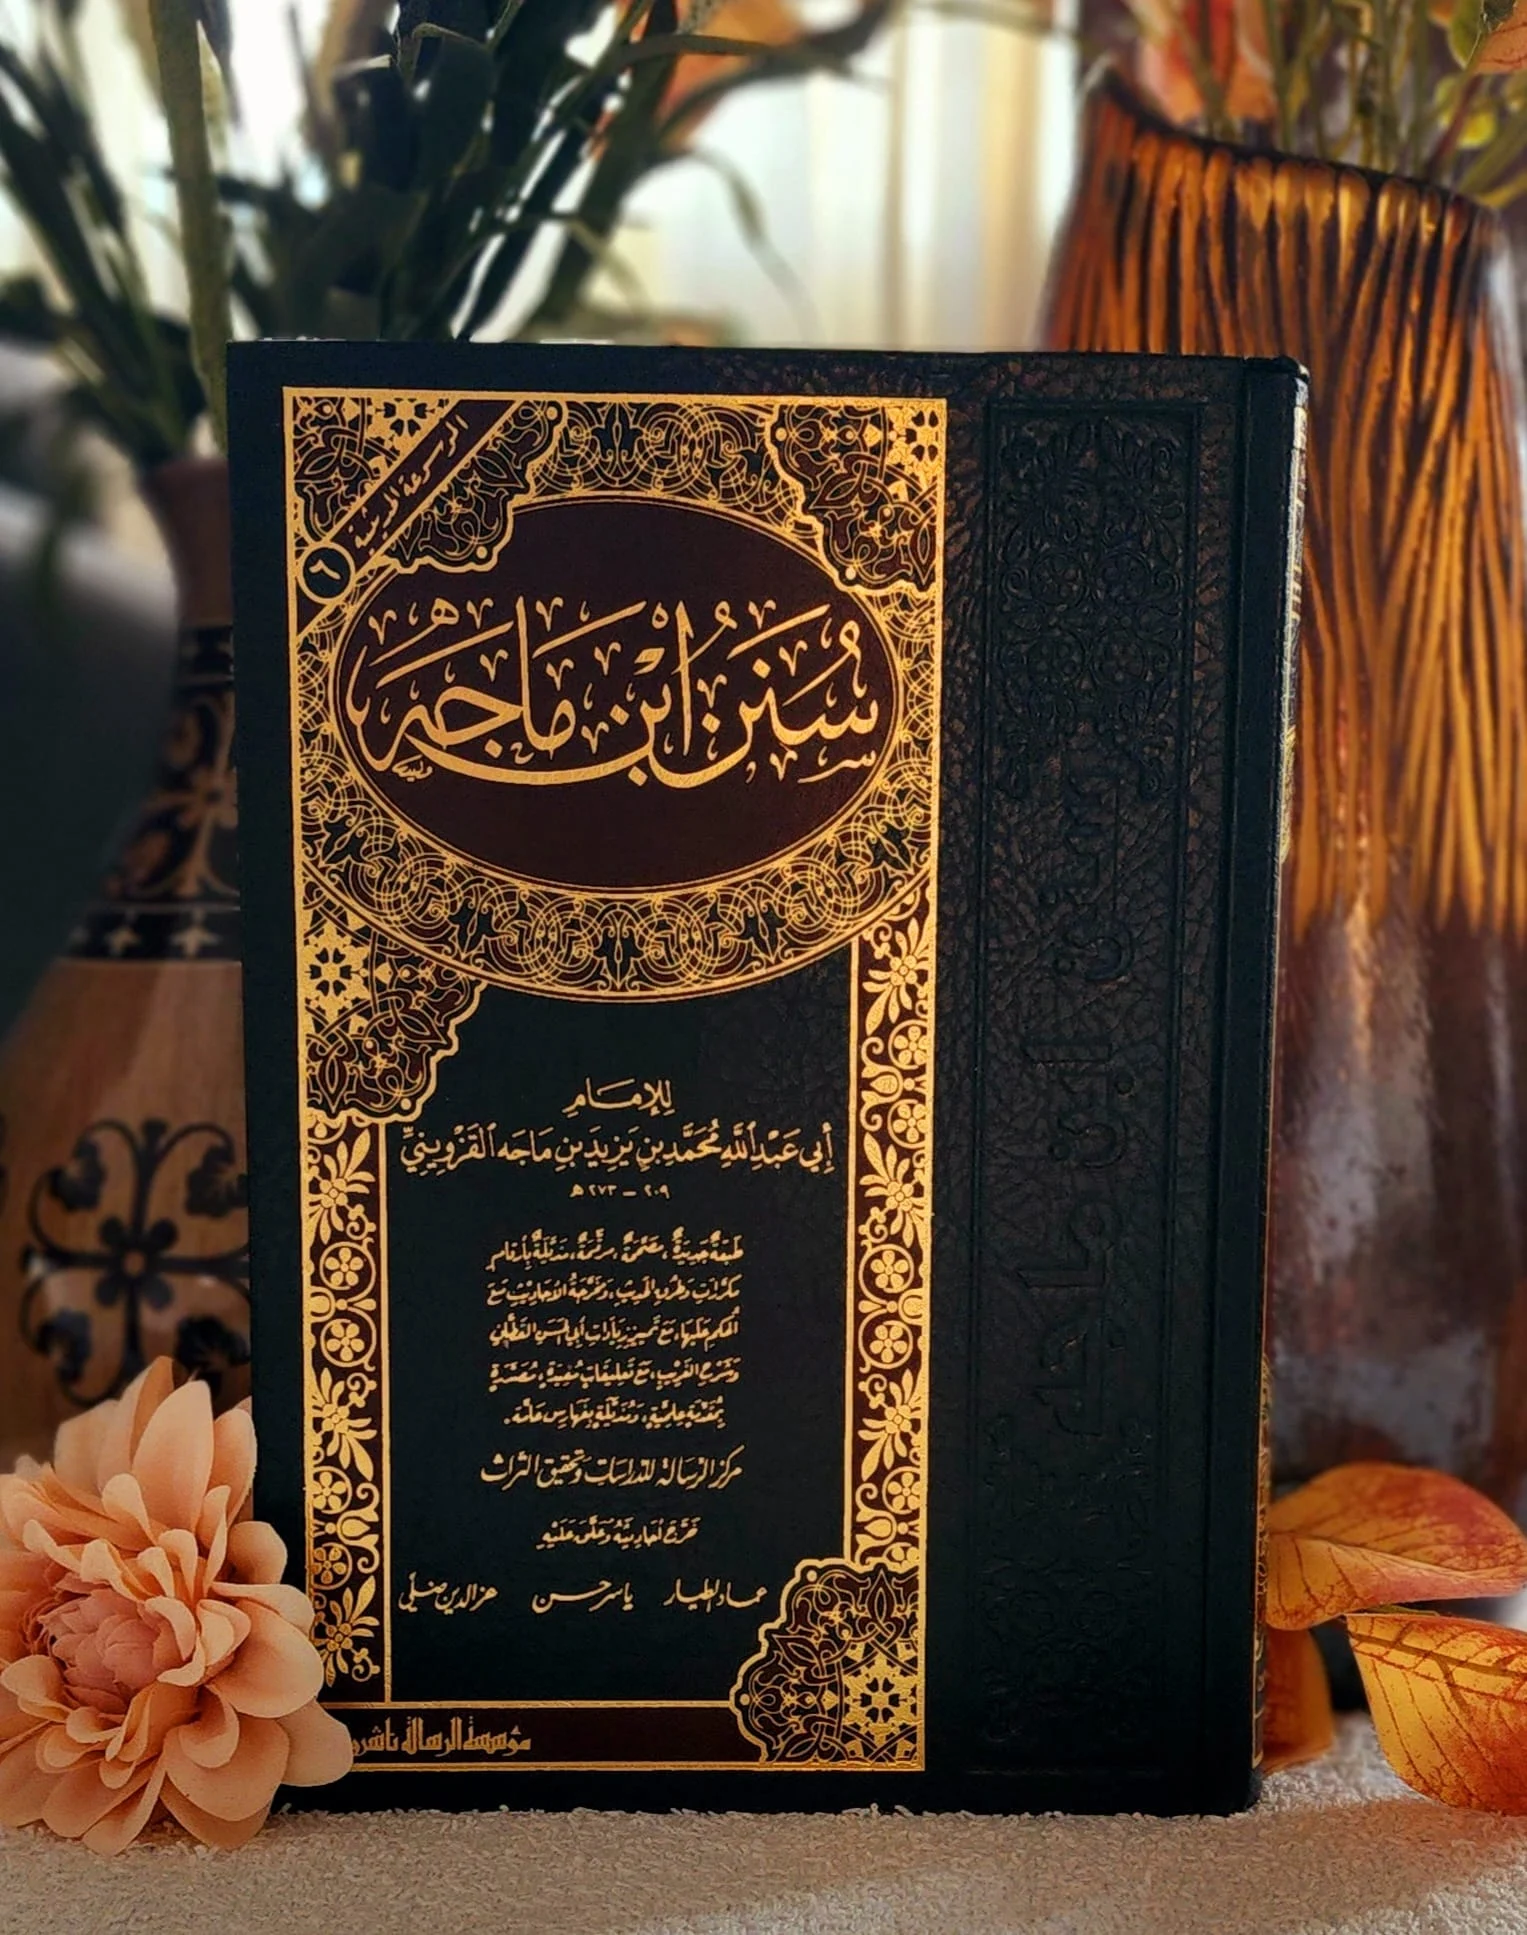 الموسوعة الحديثية
٦
سُنَنُ ابْنِ مَاجَهْ
لِلإِمَامِ
أَبِي عَبْدِ اللَّهِ مُحَمَّدِ بْنِ يَزِيدَ بْنِ مَاجَه القَزْوِينِيِّ
٢٠٩ - ٢٧٣ هـ
طَبْعَةٌ جَدِيدَةٌ، مصَحَّحَةٌ، مرقَّمَةٌ، مذَيَّلَةٌ بِأرقامِ
مكرَّراتِ وَطرُقِ الحَديثِ، وَمُخَرَّجَةُ الأحَادِيثِ مَعَ
الحُكمِ عَليْهَا، مَعَ تمييز زِيَادَاتِ أَبِي الحَسَنِ القَطَّانِ
وَشَرْحِ الغَرِيْبِ، مَعَ تَعْلِيقَاتٍ مُفِيدَةٍ، مُصَدَّرَةٍ
بمُقَدِّمَةٍ عِلميَّةٍ، وَمُذَيَّلَةٍ بِفَهَارِسَ عَامَّة.
مركز الرسالة للدراسات وتحقيق التراث
خَرَّجَ أحَادِيثَهُ وَعَلَّقَ عَلَيْهِ
عماد الطيار ياسر حسن عز الدين ضلي
مؤسسة الرسالة ناشرون
سنن ابن ماجه